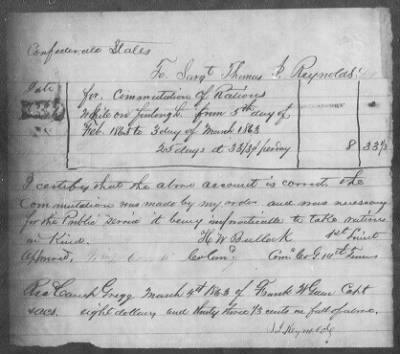 Confederate States
To Sargt Thomas J. Reynolds
Date
for Commutation of Rations
While on furlough from 5th day of
Feb. 1863 to 3 day of March 1863
25 days at 33/3¢ per day 8 33⅓
I certify that the above account is correct the
Commutation was made by my order and was necessary
for the Public service it being impracticable to take rations
in Kind. H W Bullock 1st Lieut
Approved, Co G 10th Tenn
Rec Camp Gregg March 4th 1863 of Frank W Capt
eight dollars and thirty three ⅓ cents in full of above.